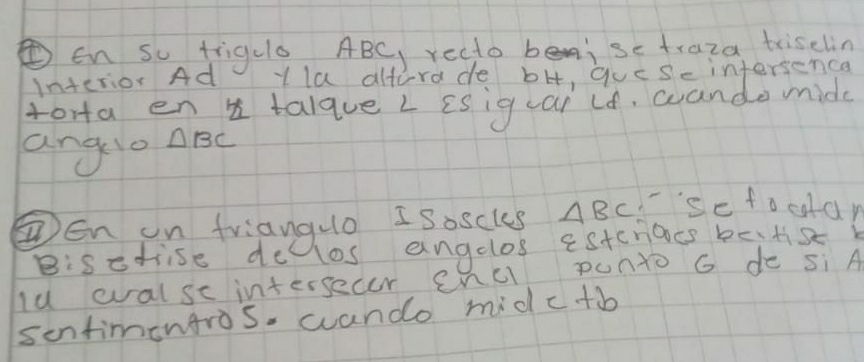 I) En su trigulo ABC, recto ben; se traza triselin
interior Ad y la altura de bH, que se intersenca
torta en talque L Es igual Ld. cuando mide
angulo ΔBC
II) En un triangulo Isoscles ΔBC:- se tocatan
Bisetrise de los angolos Esternacs
la cual se intersecar Enel ponto G de si A
sentimentros. cuando mide tb